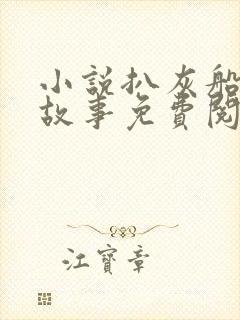 小說扒灰船
故事免費閱
江寶章